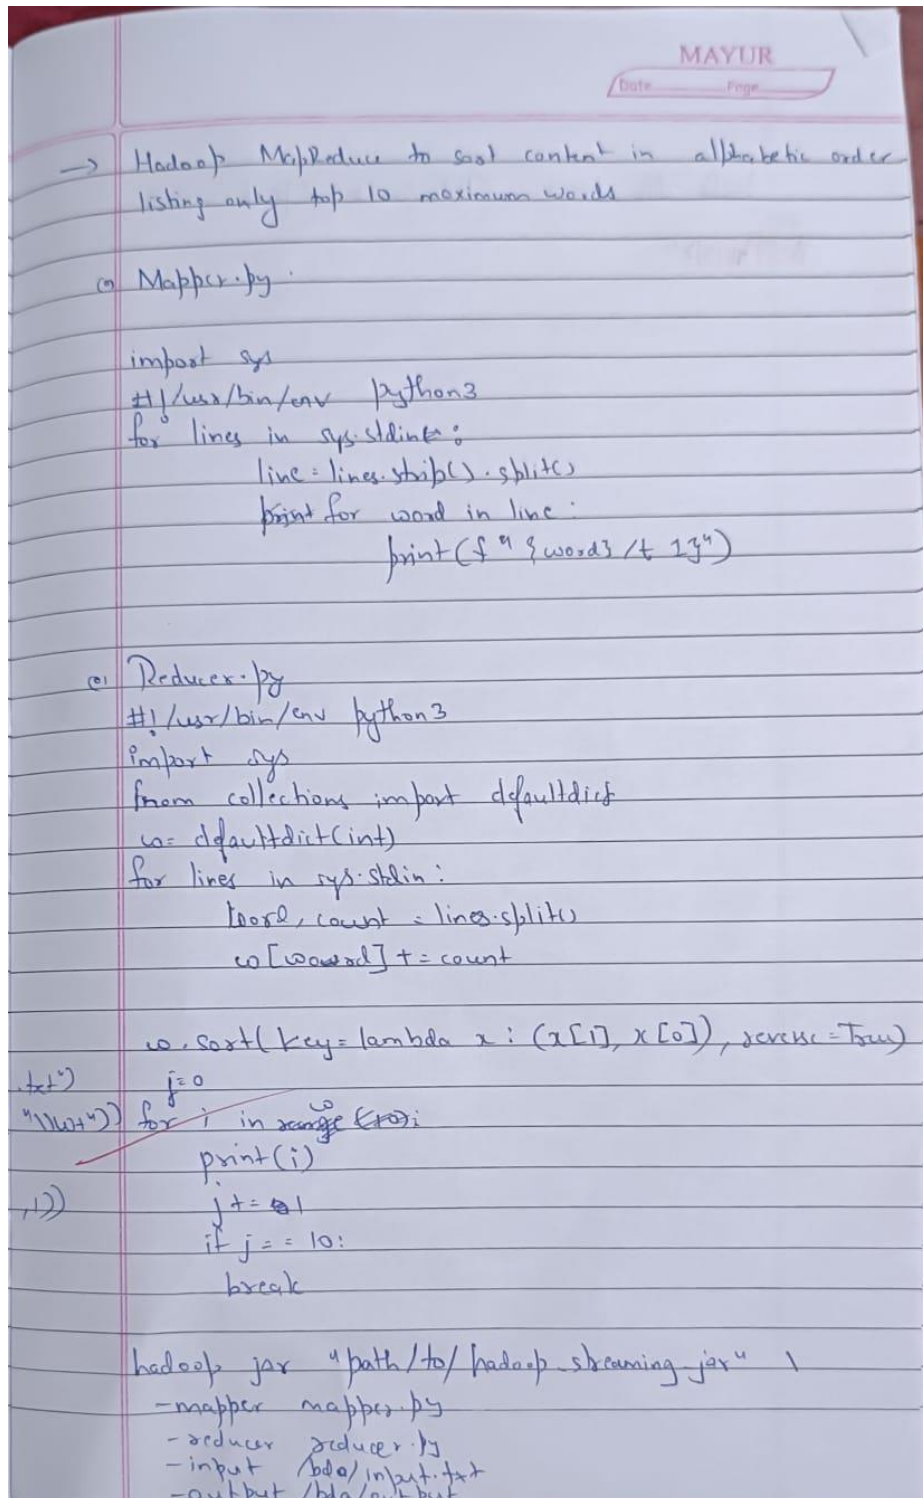 MAYUR
Date Page
→ Hadoop MapReduce to sort content in alphabetic order
listing only top 10 maximum words
Mapper.py
import sys
#!/usr/bin/env python3
for lines in sys.stdin:
line = lines.strip().split()
for word in line:
print(f"{word} /t 1}")
Reducer.py
#!/usr/bin/env python3
import sys
from collections import defaultdict
w = defaultdict(int)
for lines in sys.stdin:
word, count = lines.split()
w[word] += count
w.sort(key=lambda x: (x[1], x[0]), reverse=True)
.txt")
j=0
"\\w+"))
for i in w:
print(i)
,1))
j += 1
if j == 10:
break
hadoop jar "path/to/hadoop-streaming-jar" \
-mapper mapper.py
-reducer reducer.py
-input /bda/input.txt
-output /bda/output